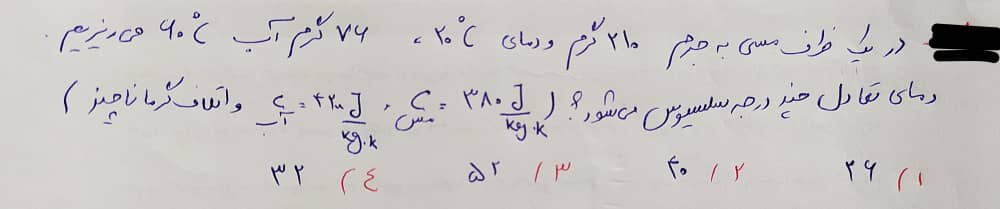 در یک ظرف مسی به جرم ۲۱۰ گرم و دمای ۲۰°C ، ۷۶ گرم آب ۶۰°C می ریزیم.
دمای تعادل چند درجه سلسیوس می شود؟ (C مس = ۳۸۰ J/kg.K ، C آب = ۴۲۰۰ J/kg.K و اتلاف گرما ناچیز)
۱) ۲۶ ۲) ۴۰ ۳) ۵۲ ۴) ۳۲